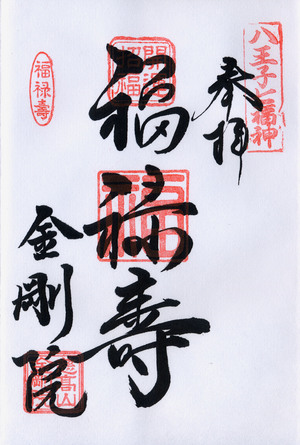 八王子七福神
奉拝
開運招福
福禄壽
福禄壽
金剛院